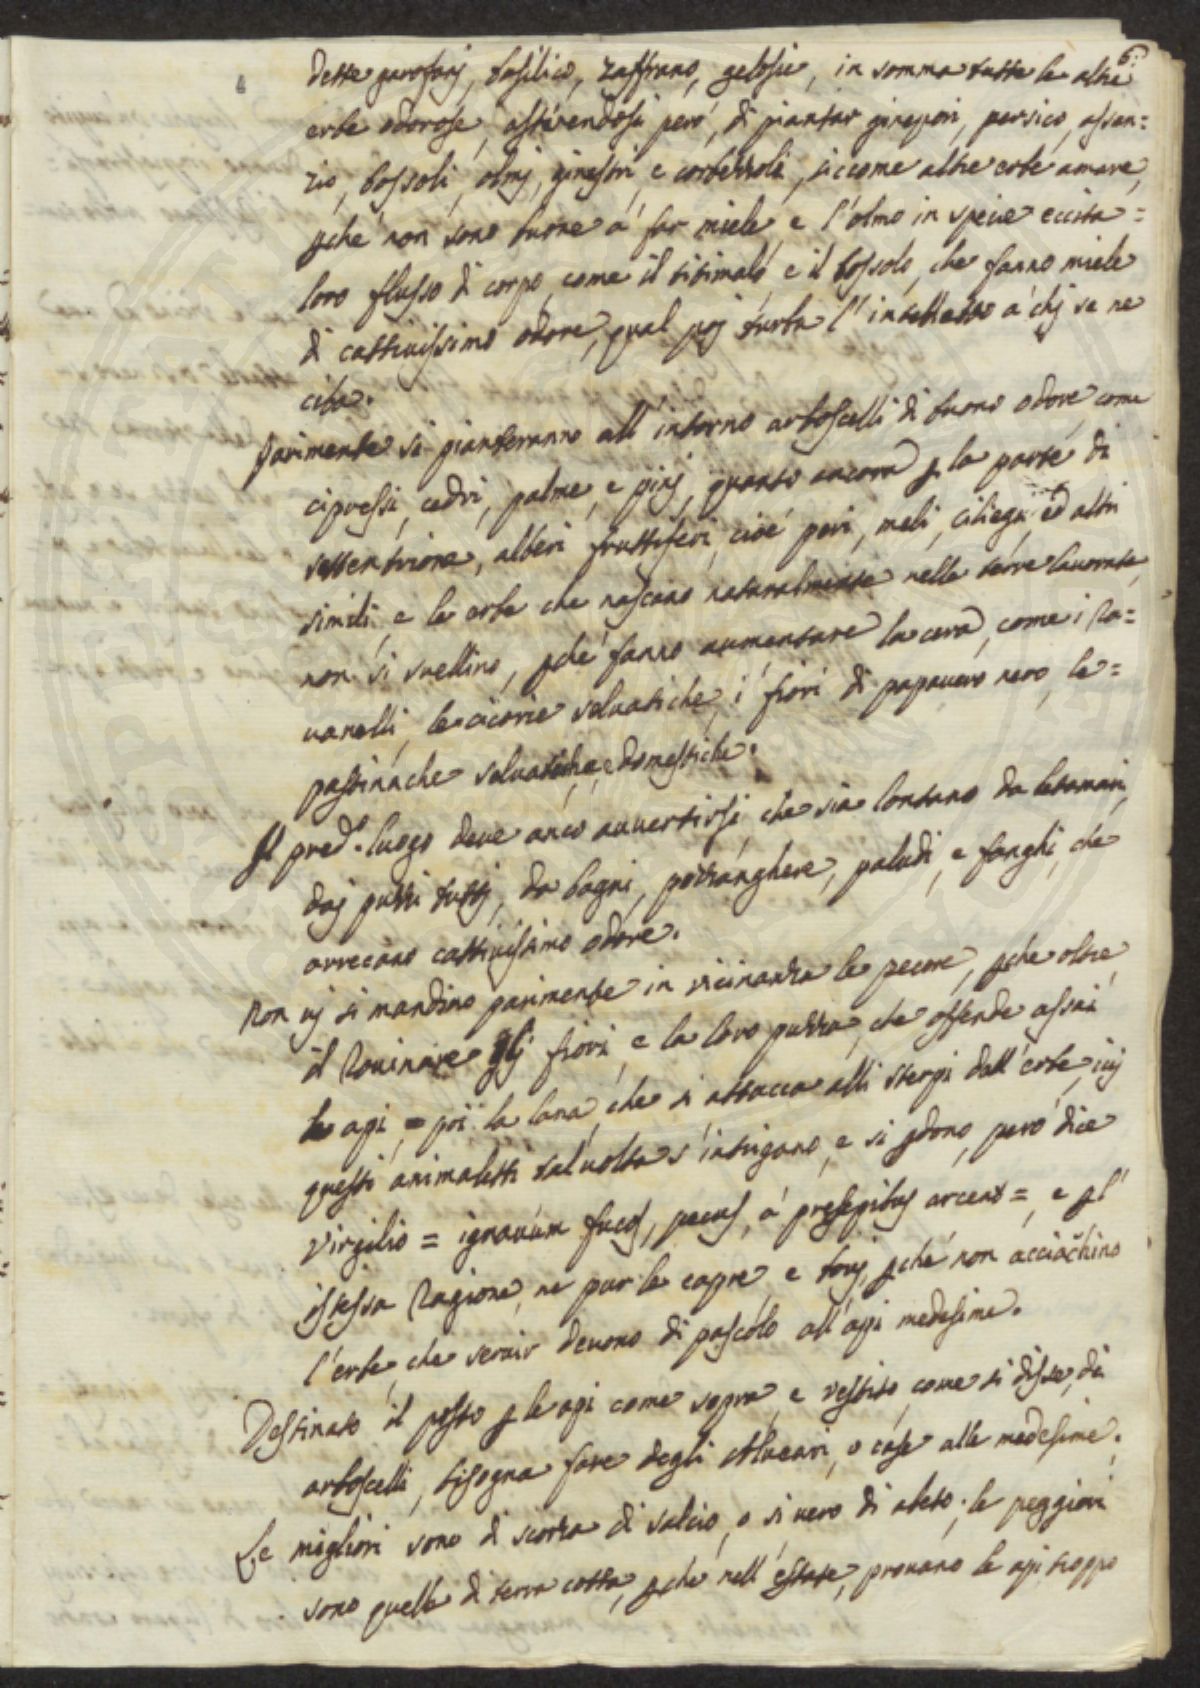 6.
dette garofanj, basilico, zaffrano, gelosie, in somma tutte le altre
erbe odorose, astenendosi però, di piantar ginepri, persico, assen=
zio, bossoli, olmj, ginestri, e corbezzoli, siccome altre erbe amare,
pche non sono buone à far miele, e l'olmo in specie eccita=
loro flusso di corpo, come il titimalo e il bossolo, che fanno miele
di cattivissimo odore, qual poj turba l'intelletto à chj se ne
ciba.
Parimente si pianteranno all'intorno arboscelli di buono odore, come
cipressi, cedri, palme, e pinj, quanto ancora p la parte di
settentrione, alberi fruttiferi, cioè peri, meli, ciliegi, ed altri
simili, e le erbe che nascano naturalmente nelle terre lavorate,
non si svellino, pchè fanno aumentare la cera, come i Ra=
vanelli, le cicorie selvatiche, i fiori di papavero nero, le=
pastinache selvatiche, e domestiche.
Il pred.o luogo deve anco avvertirsi, che sia lontano da letamari,
daj puzzi tuttj, da bagni, pozzanghere, paludi, e fanghi, che
arrecano cattivissimo odore.
Non vj si mandino parimente in vicinanza le pecore, pche oltre
il Rovinare glj fiori, e la loro puzza, che offende assai
le api, poi la lana, che si attacca alli sterpi dall'erbe, ivj
questi animaletti talvolta s'intrigano, e si pdono, però dice
Virgilio = ignavum fucos, pecus, à presepibus arcent =, e pl'
istessa Ragione, ne pur le capre, e bovj, pchè non acciachino
l'erbe, che servir devono di pascolo all'api medesime.
Destinato il posto p le api come sopra, e vestito, come si disse, di
arboscelli, bisogna fare degli Alveari, o case alle medesime.
Le migliori sono di scorza di salcio, o si vero di abeto; le peggiori
sono quelle di terra cotta, pchè nell'estate, provano le api troppo